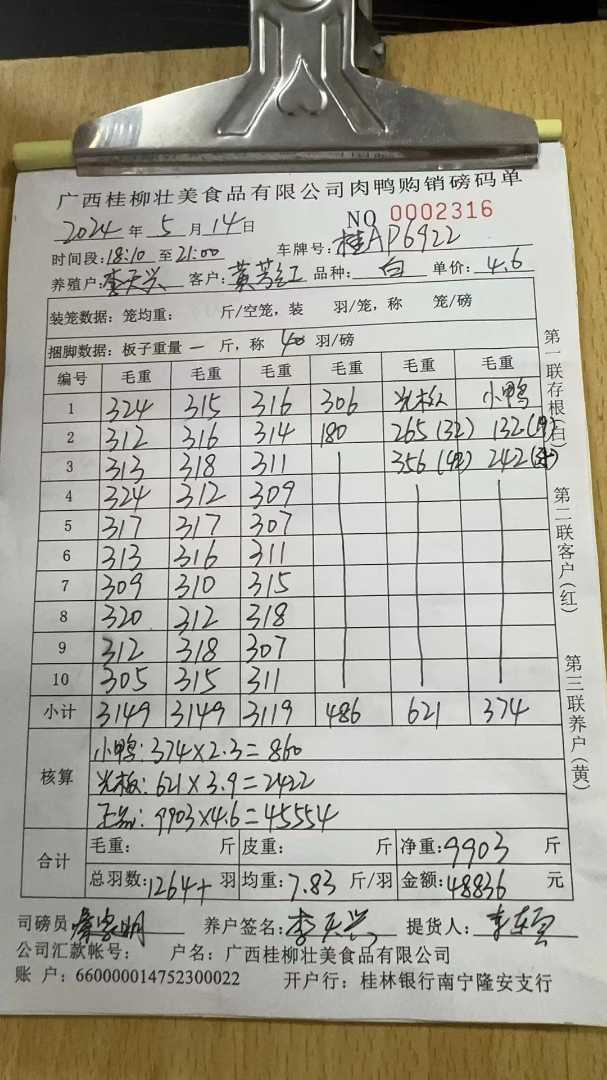 广西桂柳壮美食品有限公司肉鸭购销磅码单
2024 年 5 月 14 日 NO 0002316
时间段:18:10 至 21:00 车牌号:桂AP6922
养殖户:李天兴 客户:黄芳红 品种:白 单价:4.6
装笼数据:笼均重: 斤/空笼,装 羽/笼,称 笼/磅
捆脚数据:板子重量 一 斤,称 40 羽/磅
编号 毛重 毛重 毛重 毛重 毛重 毛重
1 324 315 316 306 光板 小鸭
2 312 316 314 180 265(32) 132(19)
3 313 318 311 356(42) 242
4 324 312 309
5 317 317 307
6 313 316 311
7 309 310 315
8 320 312 318
9 312 318 307
10 305 315 311
小计 3149 3149 3119 486 621 374
核算 小鸭:374×2.3=860
光板:621×3.9=2422
正品:9903×4.6=45554
合计 毛重: 斤 皮重: 斤 净重:9903 斤
总羽数:1264+ 羽 均重:7.83 斤/羽 金额:48836 元
司磅员 养户签名:李天兴 提货人:
公司汇款帐号: 户名:广西桂柳壮美食品有限公司
账 户:660000014752300022 开户行:桂林银行南宁隆安支行
第一联存根(白)
第二联客户(红)
第三联养户(黄)